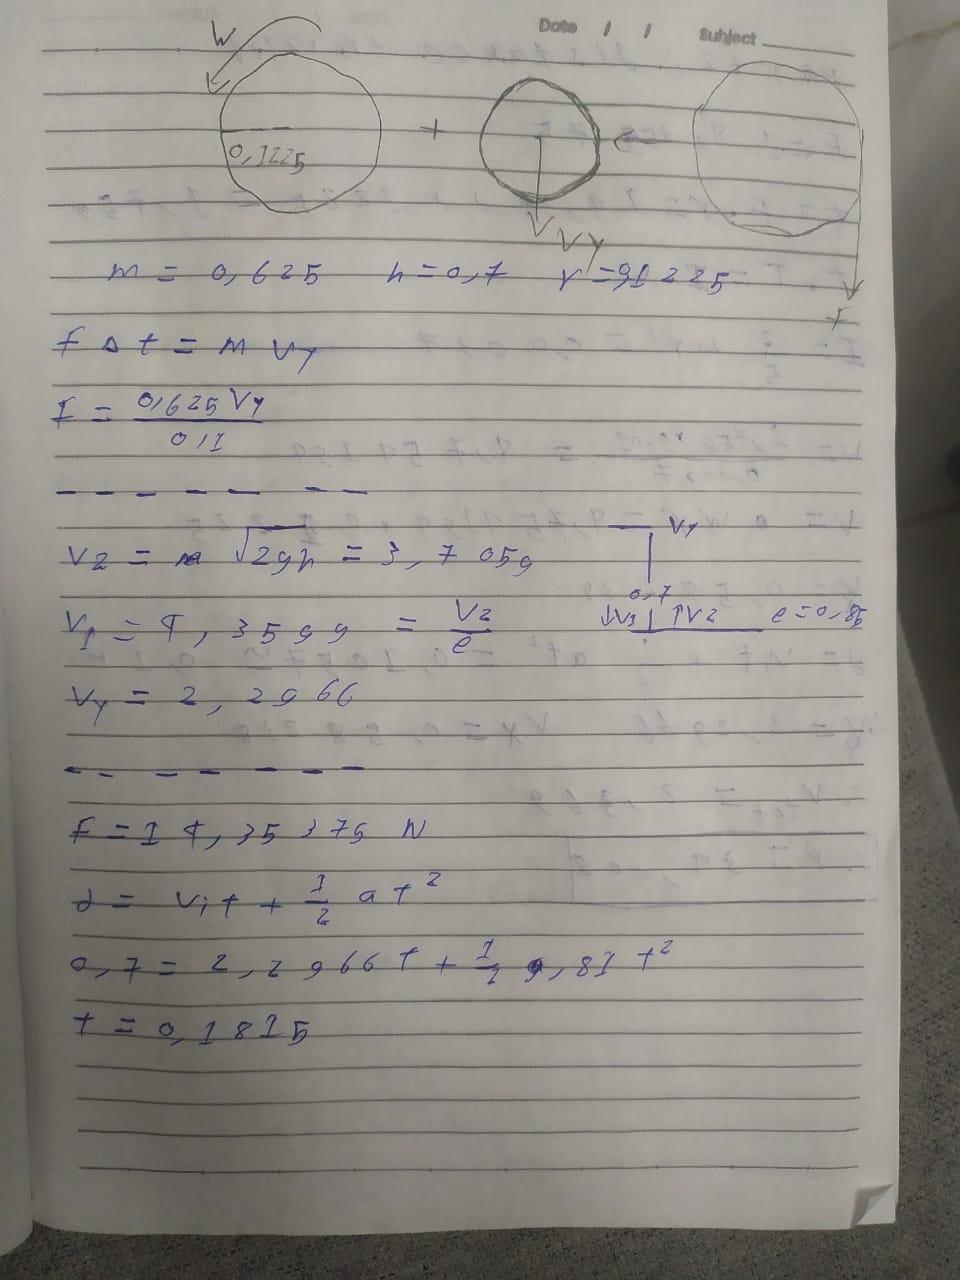 Date / / Subject
W
0,1225 +
Vy
m = 0,625 h = 0,7 r = 0,1225
F
F Δt = m Vy
F = 0,625 Vy / 0,1
V2 = √2gh = 3,7059
Vy
0,7
V1 = 4,3599 = V2 / e
↓V1 ↑V2 e = 0,85
Vy = 2,2966
F = 14,35375 N
d = Vit + 1/2 at²
0,7 = 2,2966 t + 1/2 9,81 t²
t = 0,1815